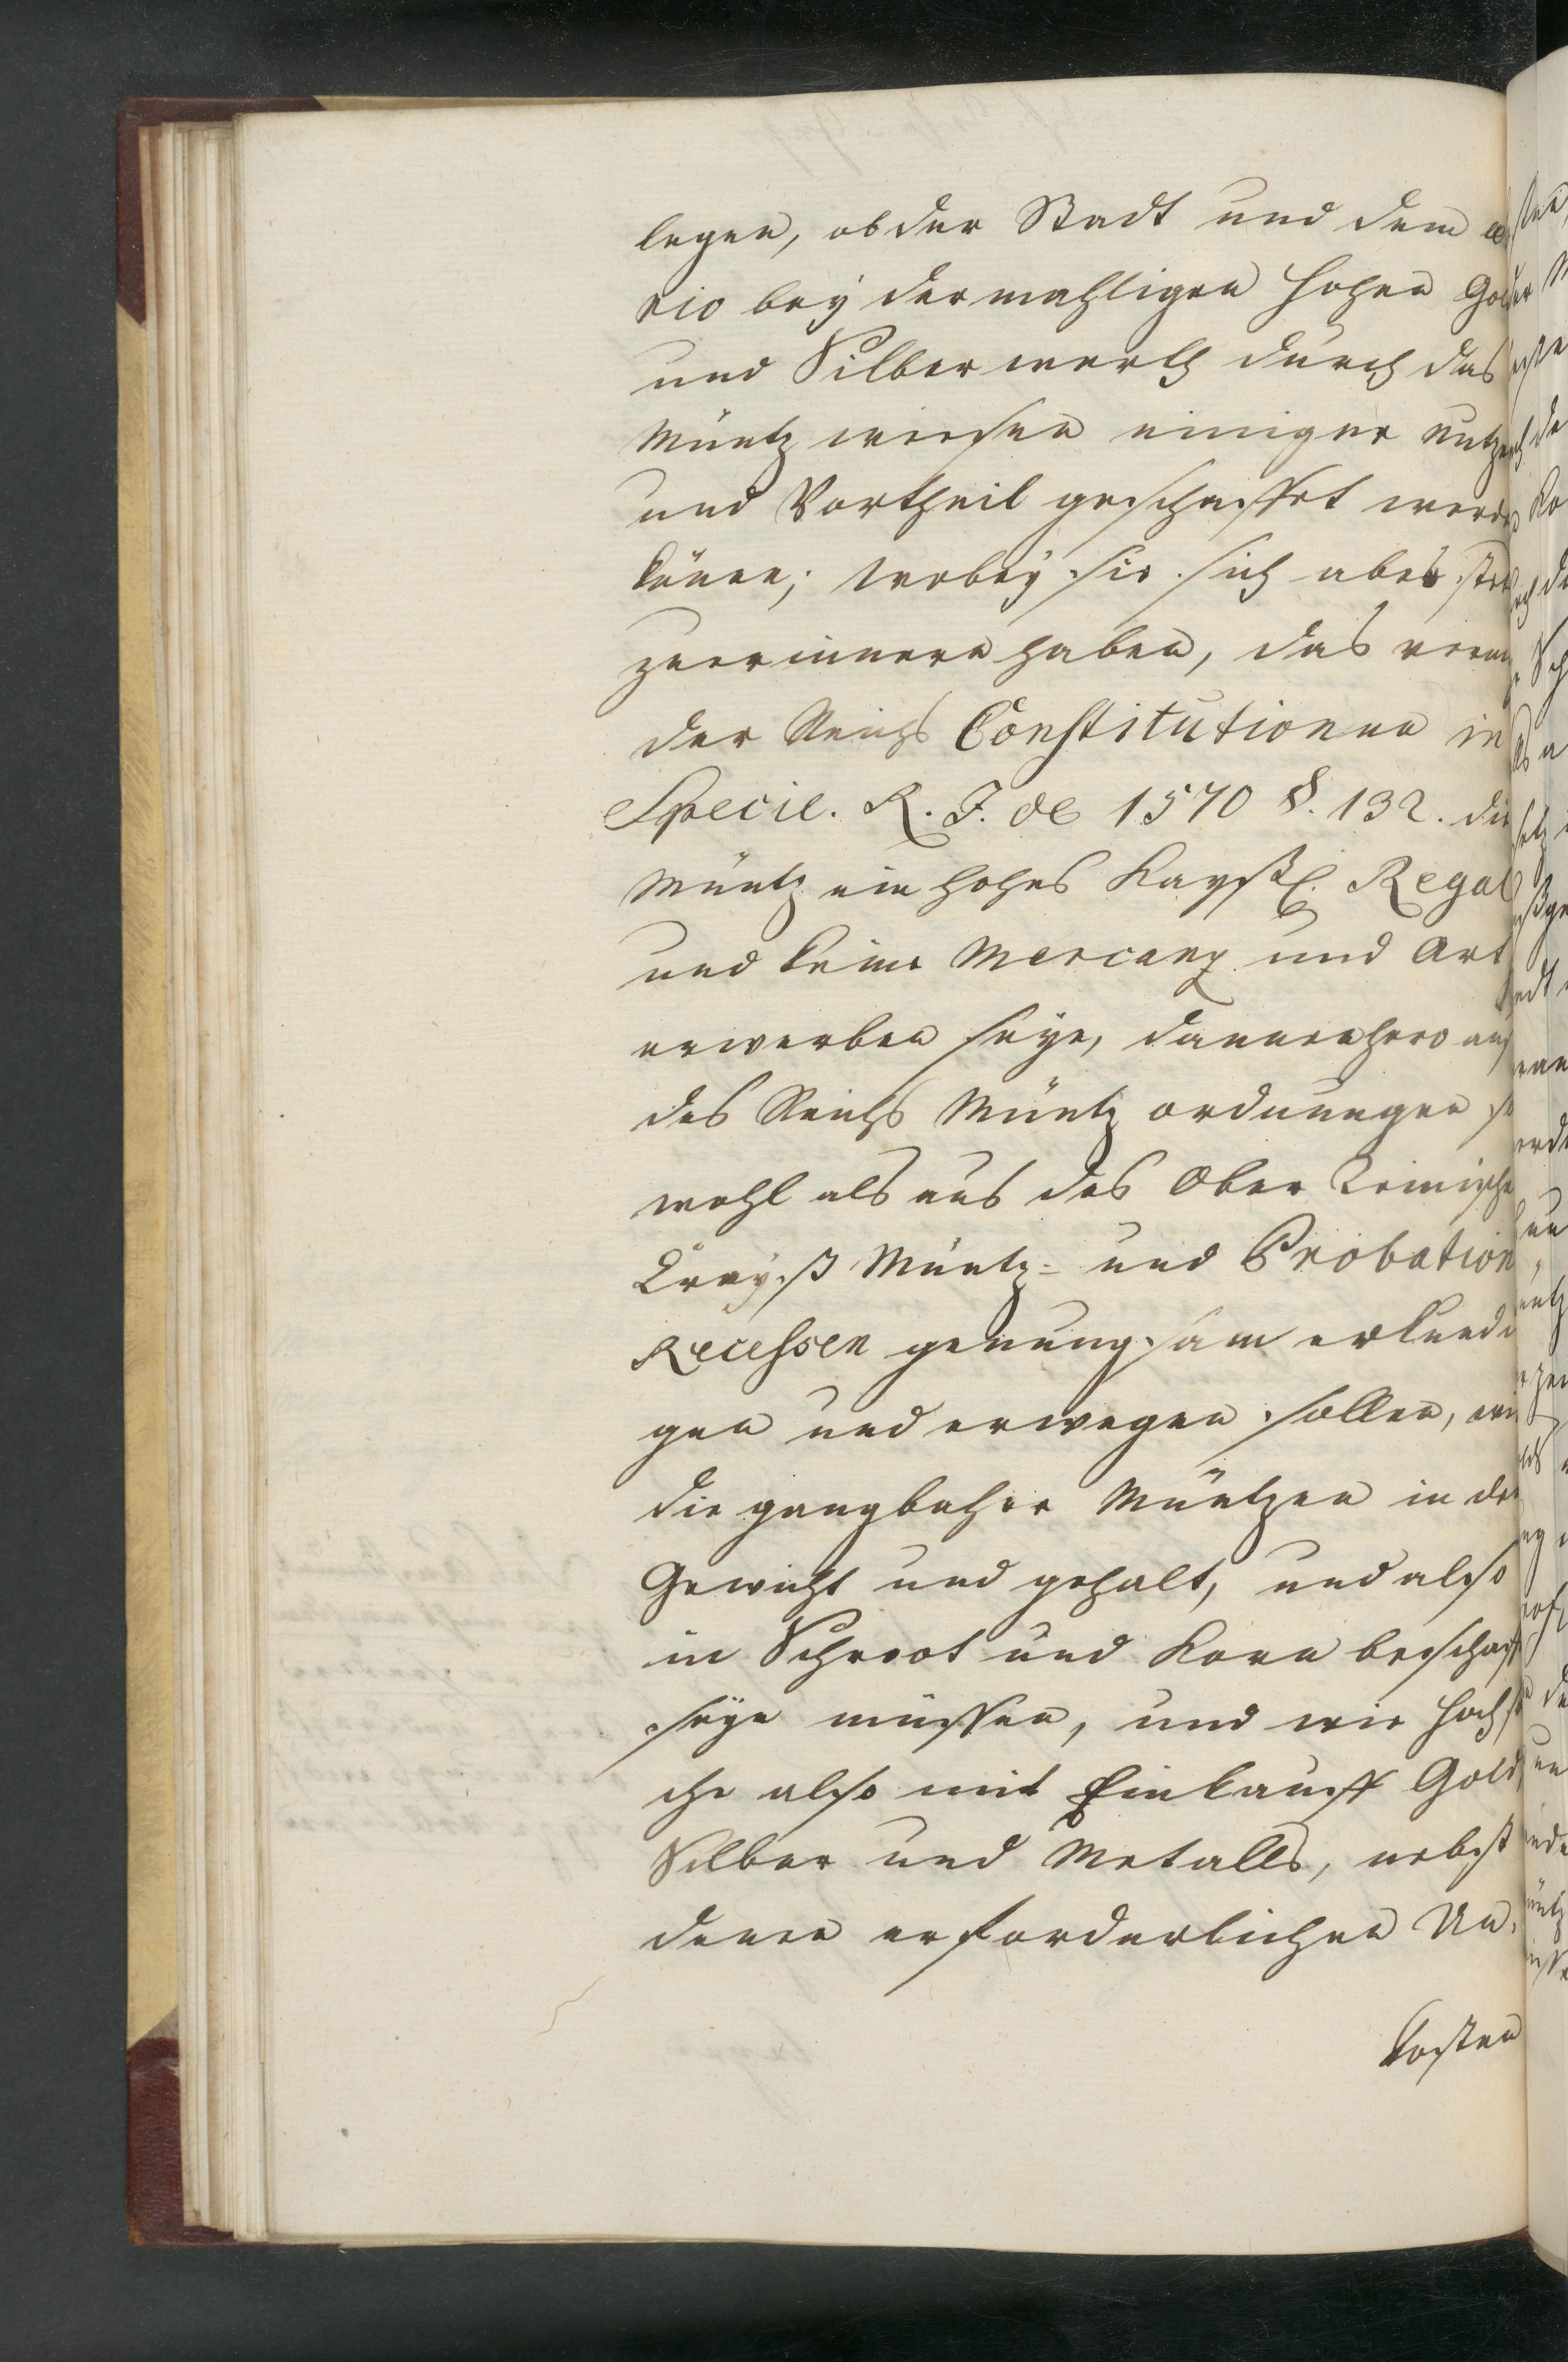 legen, ob der Stadt und dem æ
rio beÿ dermahligen hohen Gol
und Silber werth durch das
Müntz wießen einiger nutzen
und Vortheil geschaffet werde
könne; worbeÿ sie sich aber
zuerinnern haben, das
der Reichs Constitutionen in
Specie. R. I. de 1570 §. 132. die
Müntz ein hohes Kaÿßl. Regal
und keine Mercanz und Art
erwerben seÿe, dannenhero auß
des Reichs Müntz ordnungen so
wohl als aus des Ober Reinische
Craÿß Müntz- und Probation
Recessen genungsam erkundi
gen und erwegen sollen, wie
die gangbahre Müntzen in der
Gewicht und gehalt, und also
in Schroot und Korn beschaff
seÿn müssen, und wie hoch so
che also mit Einkauff Gold,
Silber und Metalls, nebst
denen erforderlichen Un-
kosten